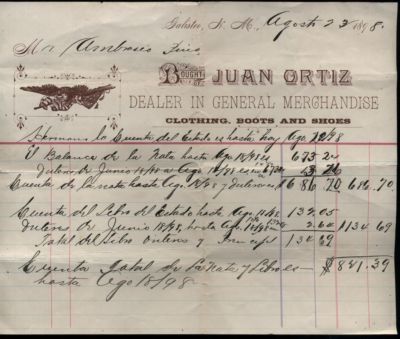 Galisteo, N. M., Agosto 23 1898.
Mr Ambrosio
BOUGHT OF JUAN ORTIZ
DEALER IN GENERAL MERCHANDISE
CLOTHING, BOOTS AND SHOES
la Cuenta del Estado es hasta hoy Ago. /98
Balance de la Nota hasta Ago 18/98 es 673 20
de Junio 18/98 a Ago 18/98
Cuenta de la nota hasta Ago 18/98 y 686 70 686.70
Cuenta del Libro del Estado hasta Ago 18/98. 132.05
de Junio 18/98, Ago 18/98 2 64 134 69
Total del Libro y 134 69
Cuenta total de La Nota y Libro es $821.39
hasta Ago 18/98